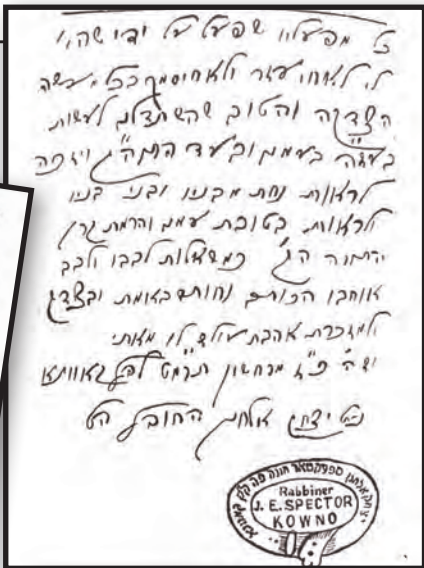 כל מפעליו שפעל על ידי שהי'
לי לאחי עזר ולאחיסמך בכל מעשה
הצדקה והטוב שהשתדלתי לעשות
בעז"ה בעמנו ובעד התוה"ק ויזכה
לראות נחת מבניו ובני בניו
ולראות בטובת עמנו והרמת קרן
התורה הק' כמשאלות לבבו ולבב
אוהבו הכותב וחותם באמת ובצדק
ולמזכרת אהבת עולם לו מאתי
יום ה' מרחשון תרמט לפ"ק קאוונא
נאם יצחק אלחנן החופ"ק הנ"ל
יצחק אלחנן ספעקטאר חונה פה ק"ק קאוונא
Rabbiner
J. E. SPECTOR
KOWNO